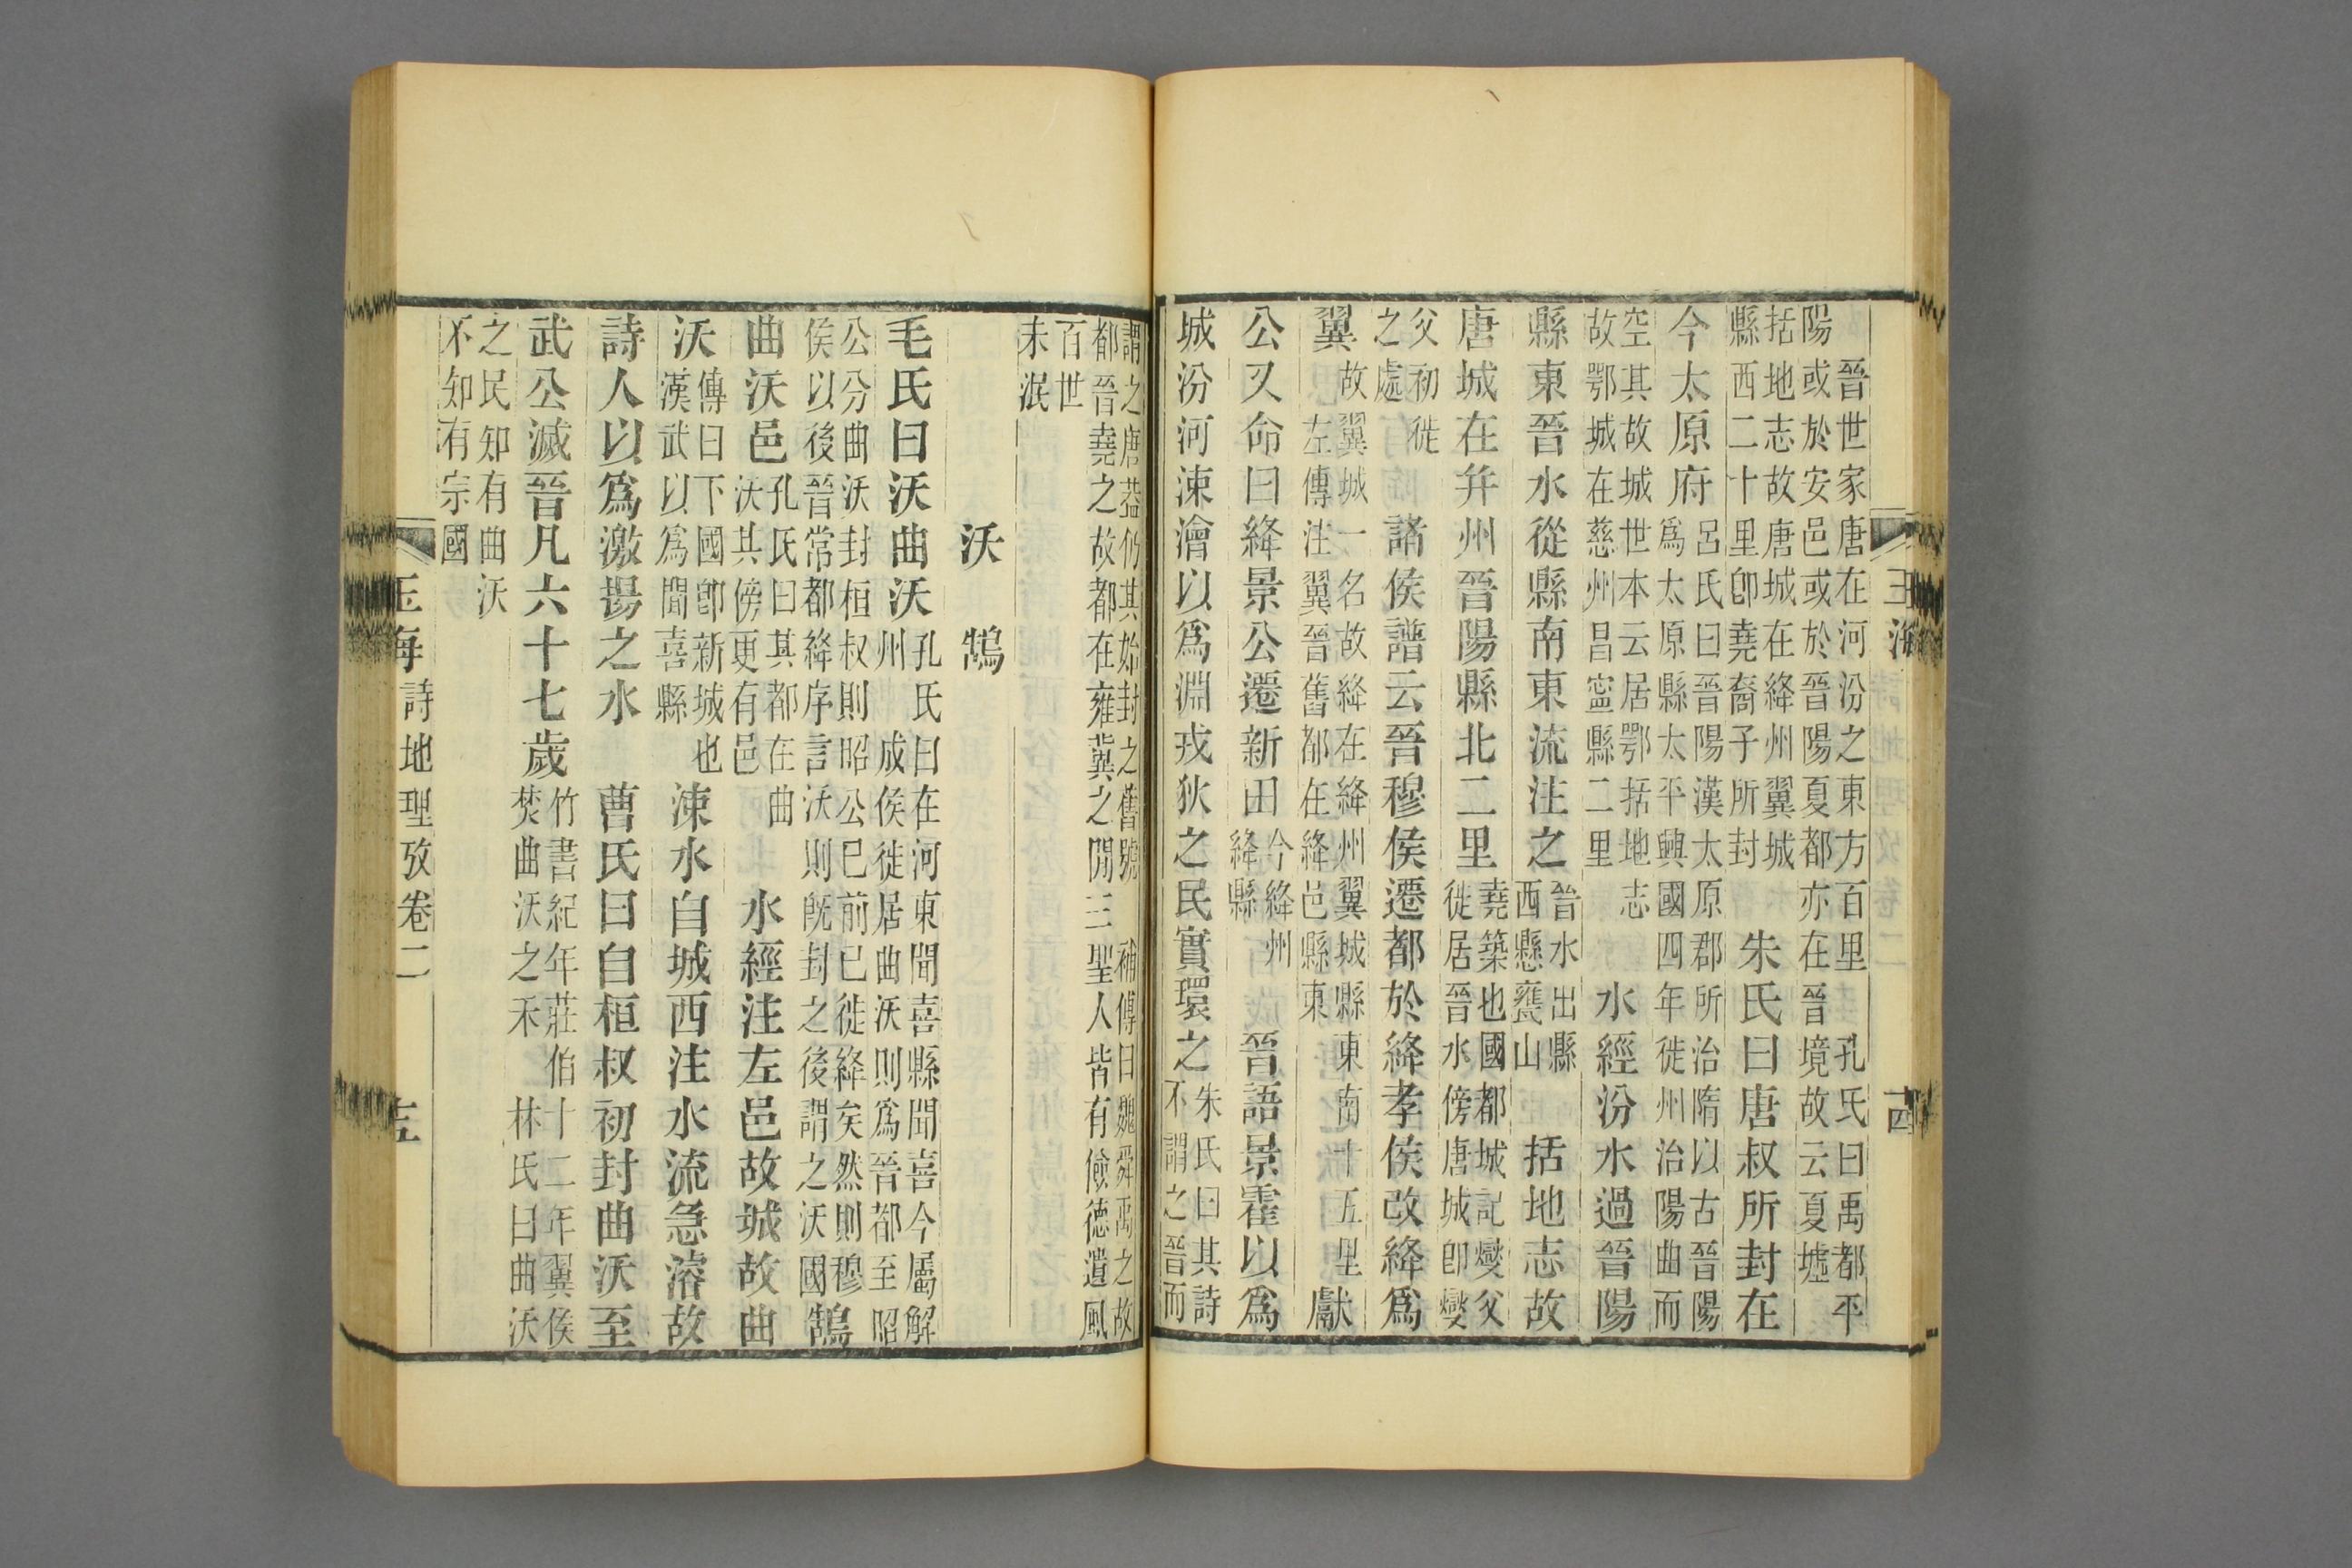 晉世家唐在河汾之東方百里 孔氏曰禹都平
陽或於安邑或於晉陽夏都亦在晉境故云夏墟
括地志故唐城在絳州翼城
縣西二十里卽堯裔子所封
朱氏曰唐叔所封在
今太原府
呂氏曰晉陽漢太原郡所治隋以古晉陽
爲太原縣太平興國四年徙州治陽曲而
空其故城世本云居鄂括地志
故鄂城在慈州昌寍縣二里
水經汾水過晉陽
縣東晉水從縣南東流注之
晉水出縣
西懸甕山
括地志故
唐城在幷州晉陽縣北二里
堯築也國都城記燮父
徙居晉水傍唐城卽燮
父初徙
之處
諸侯譜云晉穆侯遷都於絳孝侯改絳爲
翼
故翼城一名故絳在絳州翼城縣東南十五里
左傳注翼晉舊都在絳邑縣東
獻
公又命曰絳景公遷新田
今絳州
絳縣
晉語景霍以爲
城汾河涑澮以爲淵戎狄之民實環之
朱氏曰其詩
不謂之晉而
玉海
謂之唐蓋仍其始封之舊號 補傳曰魏舜禹之故
都晉堯之故都在雍冀之閒三聖人皆有儉德遺風
百世
未泯
沃 鵠
毛氏曰沃曲沃
孔氏曰在河東聞喜縣聞喜今屬解
州 成侯徙居曲沃則爲晉都至昭
公分曲沃封桓叔則昭公已前已徙絳矣然則穆
侯以後晉常都絳序言沃則旣封之後謂之沃國
鵠
曲沃邑
孔氏曰其都在曲
沃其傍更有邑
水經注左邑故城故曲
沃
傳曰下國卽新城也
漢武以爲聞喜縣
涑水自城西注水流急濬故
詩人以爲激揚之水 曹氏曰自桓叔初封曲沃至
武公滅晉凡六十七歲
竹書紀年莊伯十二年翼侯
焚曲沃之禾 林氏曰曲沃
之民知有曲沃
不知有宗國
玉海 詩地理攷卷二